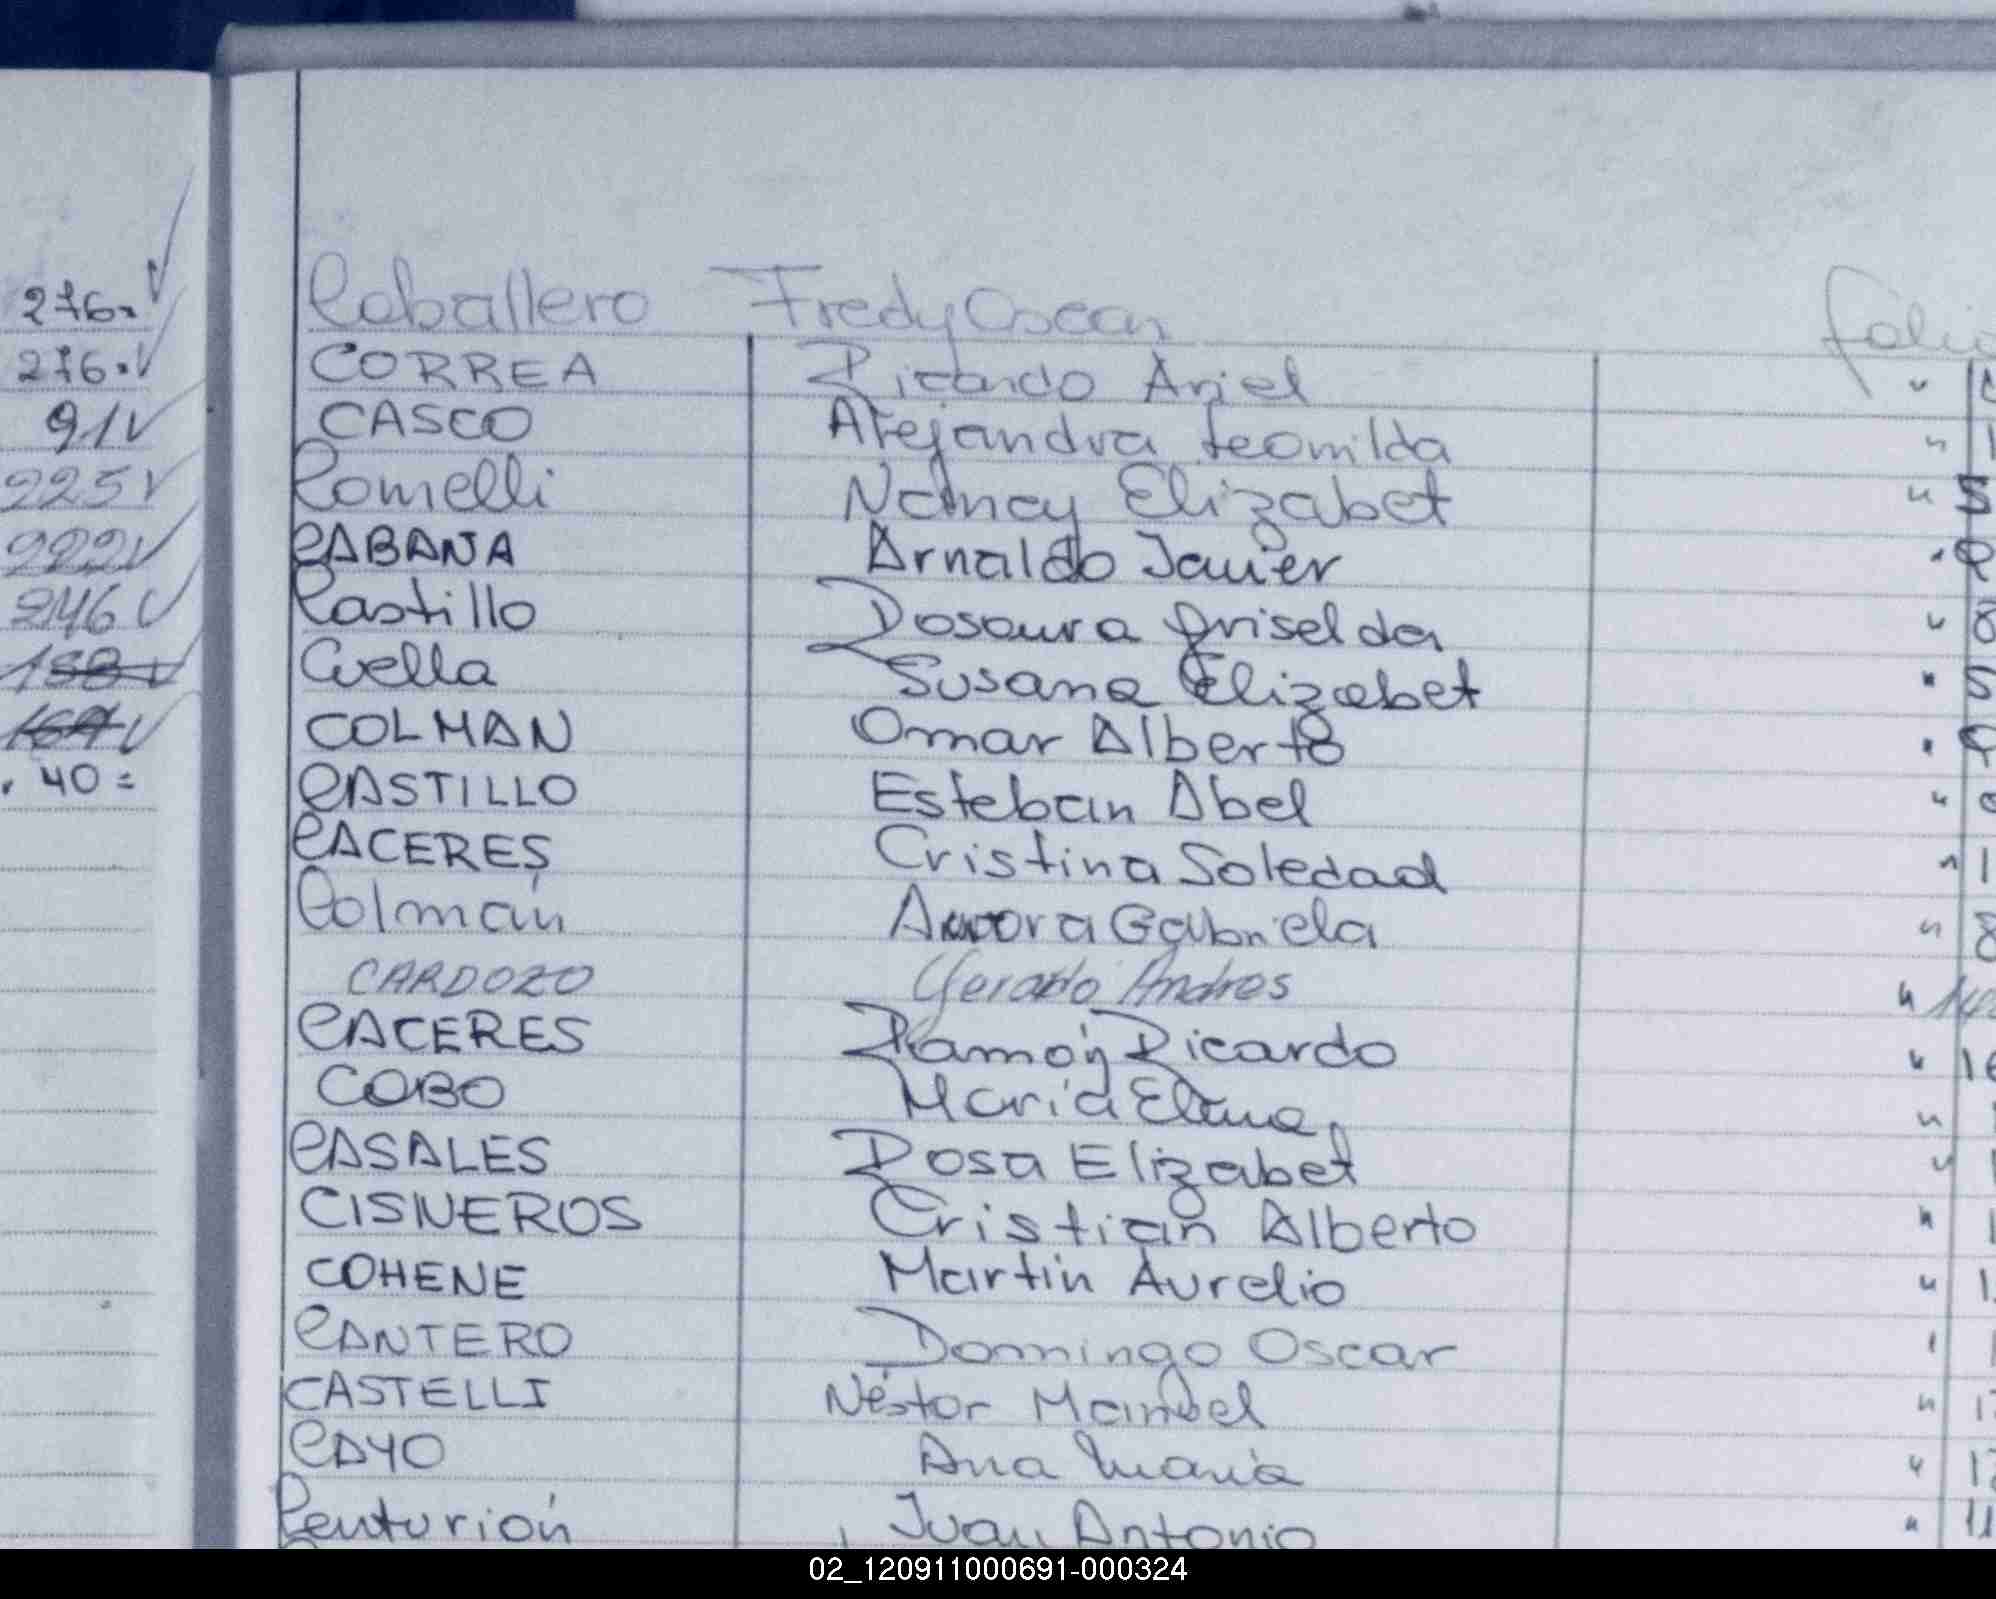 276.. V
276.. V
91 V
225 V
222 V
246 V
158 V
V
. 40 =
Caballero Fredy Oscar folio
CORREA Ricardo Ariel "
CASCO Alejandra Teomilda "
Comelli Nancy Elizabet " 5
CABANA Arnaldo Javier "
Castillo Rosaura Griselda " 8
Cuella Susana Elizabet " 5
COLMAN Omar Alberto "
CASTILLO Esteban Abel "
CACERES Cristina Soledad " 1
Colmán Aurora Gabriela " 8
CARDOZO Gerardo Andres " 14
CACERES Ramón Ricardo " 16
COBO María Elena "
CASALES Rosa Elizabet " 1
CISNEROS Cristian Alberto " 1
COHENE Martín Aurelio " 1
CANTERO Domingo Oscar " 1
CASTELLI Néstor Manuel " 1
CAYO Ana María " 1
Centurión Juan Antonio " 11
02_120911000691-000324